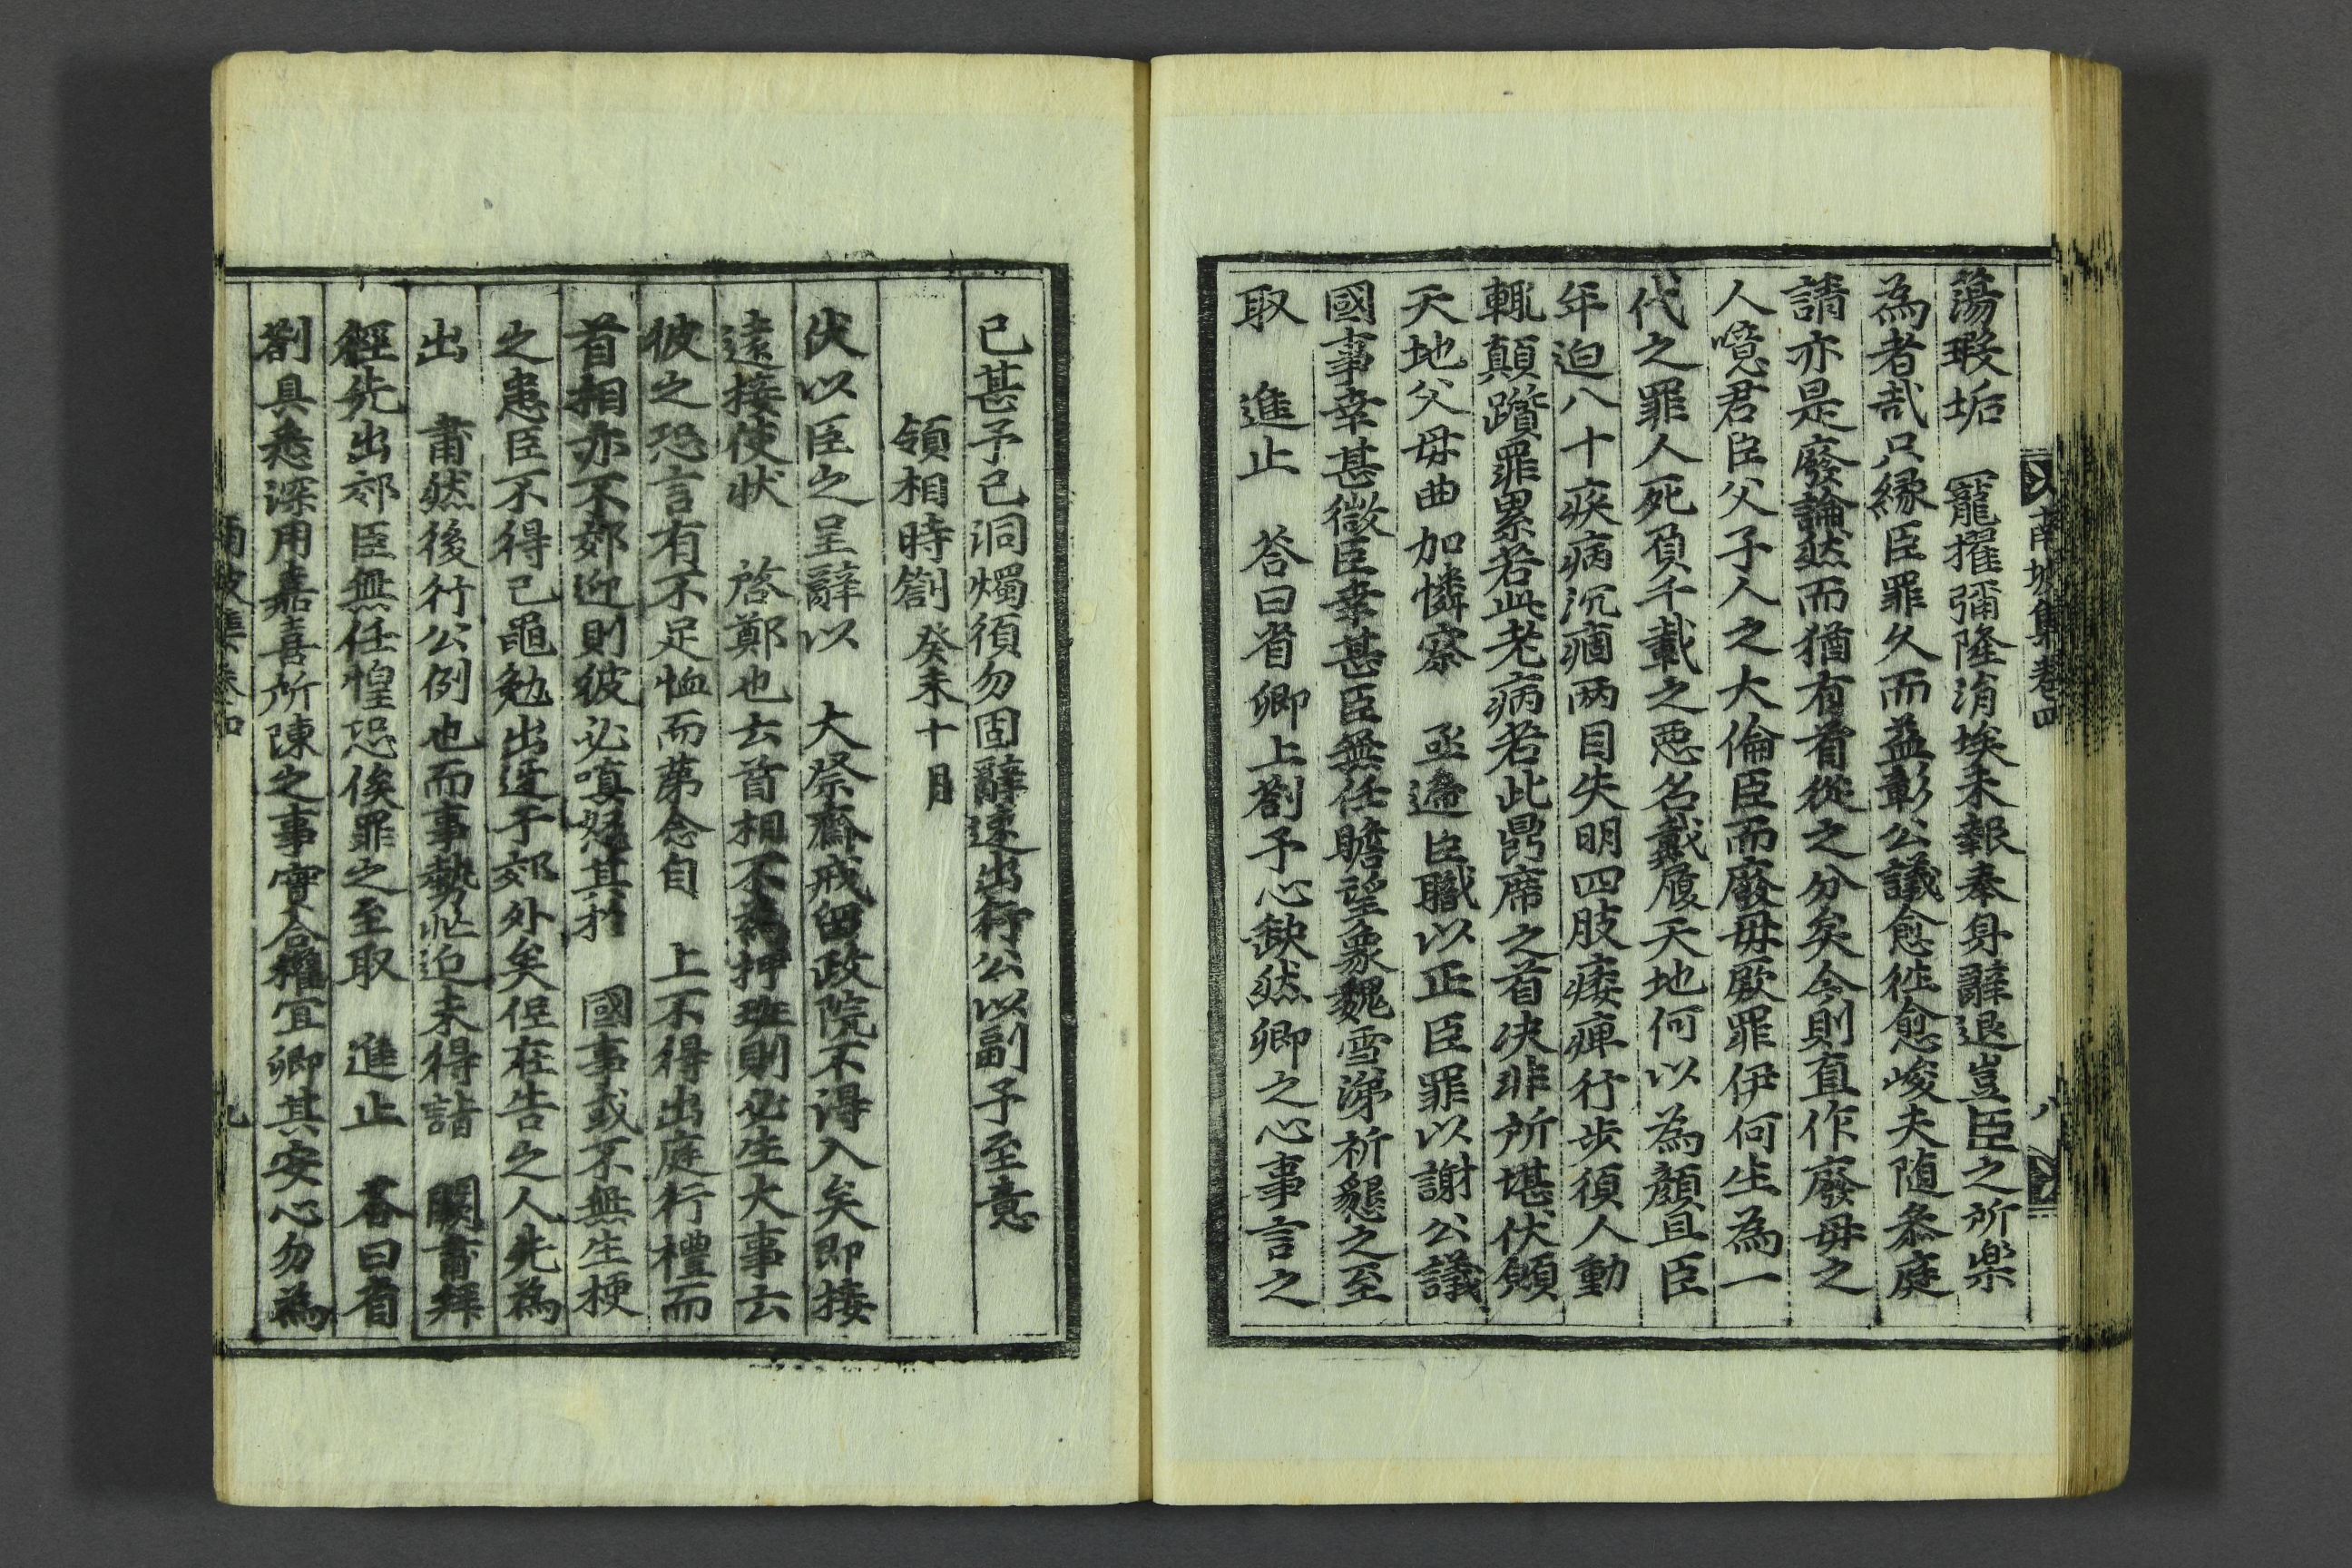 南坡集卷四 八
蕩瑕垢 寵擢彌隆涓埃未報奉身辭退豈臣之所樂
為者哉只緣臣罪久而益彰公議愈徃愈峻夫随叅庭
請亦是廢論然而猶有首從之分矣今則直作廢毋之
人噫君臣父子人之大倫臣而廢毋厥罪伊何生為一
代之罪人死負千載之惡名戴履天地何以為顏且臣
年迫八十疾病沉痼兩目失明四肢痿痺行步須人動
輒顛躓罪累若此老病若此鼎席之首决非所堪伏願
天地父毋曲加憐察 亟遞臣職以正臣罪以謝公議
國事幸甚微臣幸甚臣無任瞻望象魏雪涕祈懇之至
取 進止 荅曰省卿上劄予心缺然卿之心事言之
已甚予已洞燭須勿固辭速出行公以副予至意
領相時劄 癸未十月
伏以臣之呈辭以 大祭齋戒留政院不得入矣即接
遠接使狀 啓鄭也云首相不為押班則必生大事云
彼之恐言有不足恤而苐念自 上不得出庭行禮而
首相亦不郊迎則彼必嗔怒其於 國事或不無生梗
之患臣不得已黽勉出迓于郊外矣但在告之人先為
出 肅然後行公例也而事勢忙迫未得詣 闕肅拜
經先出郊臣無任惶恐俟罪之至取 進止 荅曰省
劄具悉深用嘉喜所陳之事實合權宜卿其安心勿為